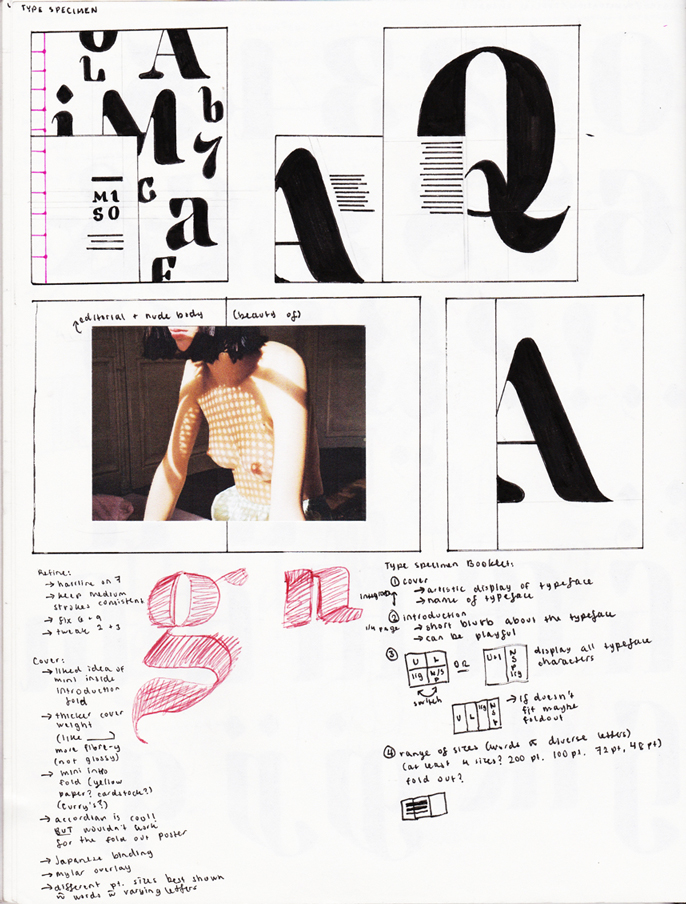 TYPE SPECIMEN
O
L
A
i
M
b
y
c
a
F
MI
SO
A
Q
editorial + nude body (beauty of)
A
Refine:
→ hairline on 7
→ keep medium
strokes consistent
→ fix G + g
→ tweak 2 + 3
g
n
Cover:
→ liked idea of
mini inside
introduction
fold
→ thicker cover
weight
(like
more fibre-y
(not glossy)
→ mini intro
fold (yellow
paper? cardstock?)
(curry's?)
→ accordian is cool!
BUT wouldn't work
for the fold out poster
→ Japanese binding
→ mylar overlay
→ different pt. sizes best shown
w words w varying letters
Type specimen Booklet:
① cover
→ artistic display of typeface
→ name of typeface
② introduction
→ short blurb about the typeface
→ can be playful
③
U L
lig N/S
P
switch
OR
U+L
N
S
P
lig
display all typeface
characters
U L lig N
S
P
→ If doesn't
fit maybe
foldout
④ range of sizes (words w diverse letters)
(at least 4 sizes? 200 pt. 100 pt. 72 pt, 48 pt)
fold out?